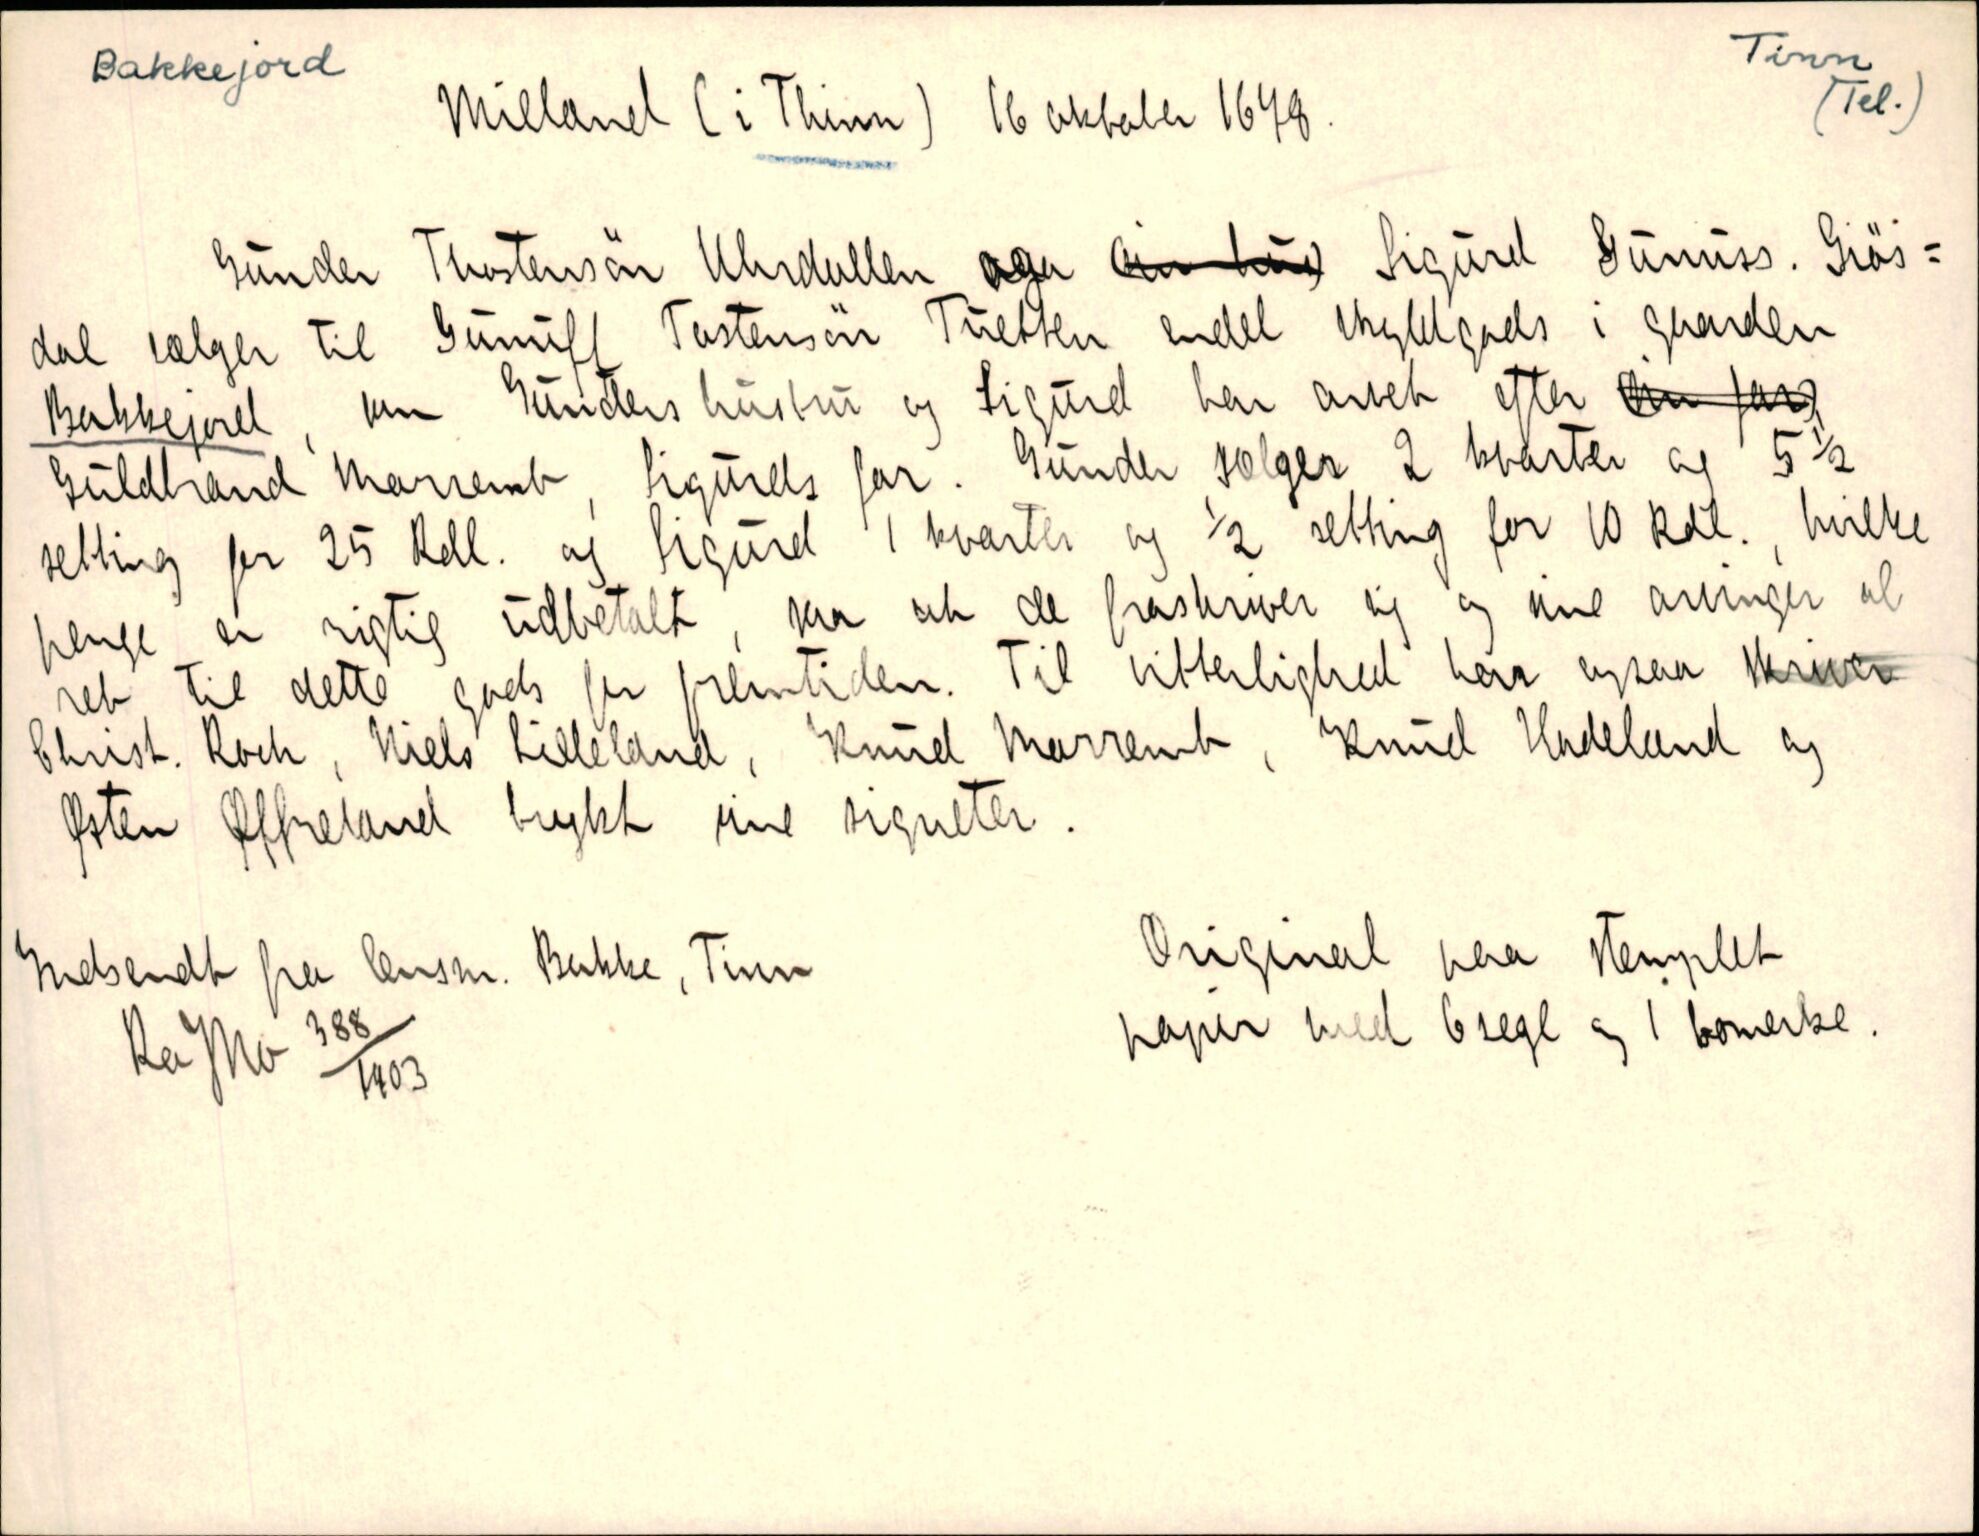 Bakkejord
Tinn
(Tel.)
Milland (i Thinn) 16 oktober 1678.
Gunder Thostensön Uhrdallen og Sigurd Gunuss. Giös=
dal sælger til Gunuff Tostensön Tuetten endel skyldgods i gaarden
Bakkejord, som Gunders hustru og Sigurd har arvet efter
Guldbrand Marremb, Sigurds far. Gunder sælger 2 kvarter og 5 1/2
setting for 25 Rdl. og Sigurd 1 kvarter og 1/2 setting for 10 Rdl., hvilke
penge er rigtig udbetalt, saa at de fraskriver sig og sine arvinger al
ret til dette gods for fremtiden. Til vitterlighed har ogsaa skriver
Christ. Koch, Niels Lilleland, Knud Marremb, Knud Hadeland og
Østen Øffreland brukt sine signeter.
Indsendt fra lensm. Bakke, Tinn
Original paa stemplet
papir med 6 segl og 1 bomerke.
Ra JNo 388/1903